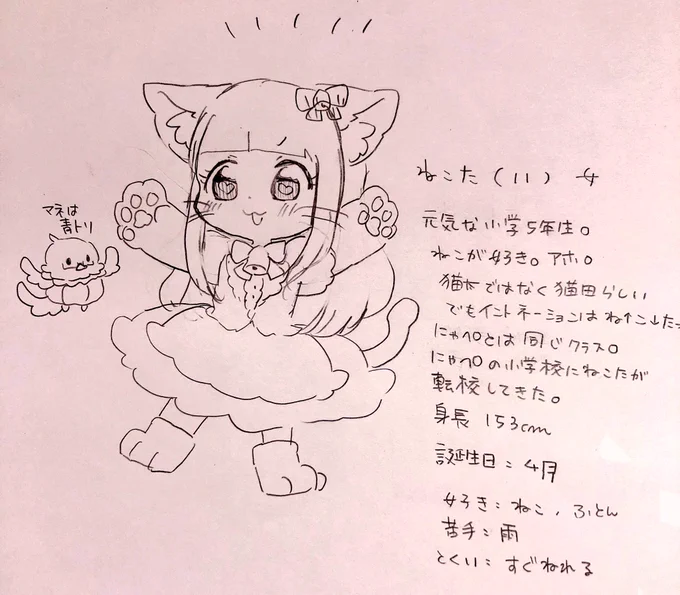 マネは
青トリ
ねこた (11) 女
元気な小学5年生。
ねこが好き。アホ。
猫太ではなく猫田らしい
でもイントネーションはね↑こ↓た→
にゃペロとは同じクラス。
にゃペロの小学校にねこたが
転校してきた。
身長 153cm
誕生日：4月
好き：ねこ、ふとん
苦手：雨
とくい：すぐねれる